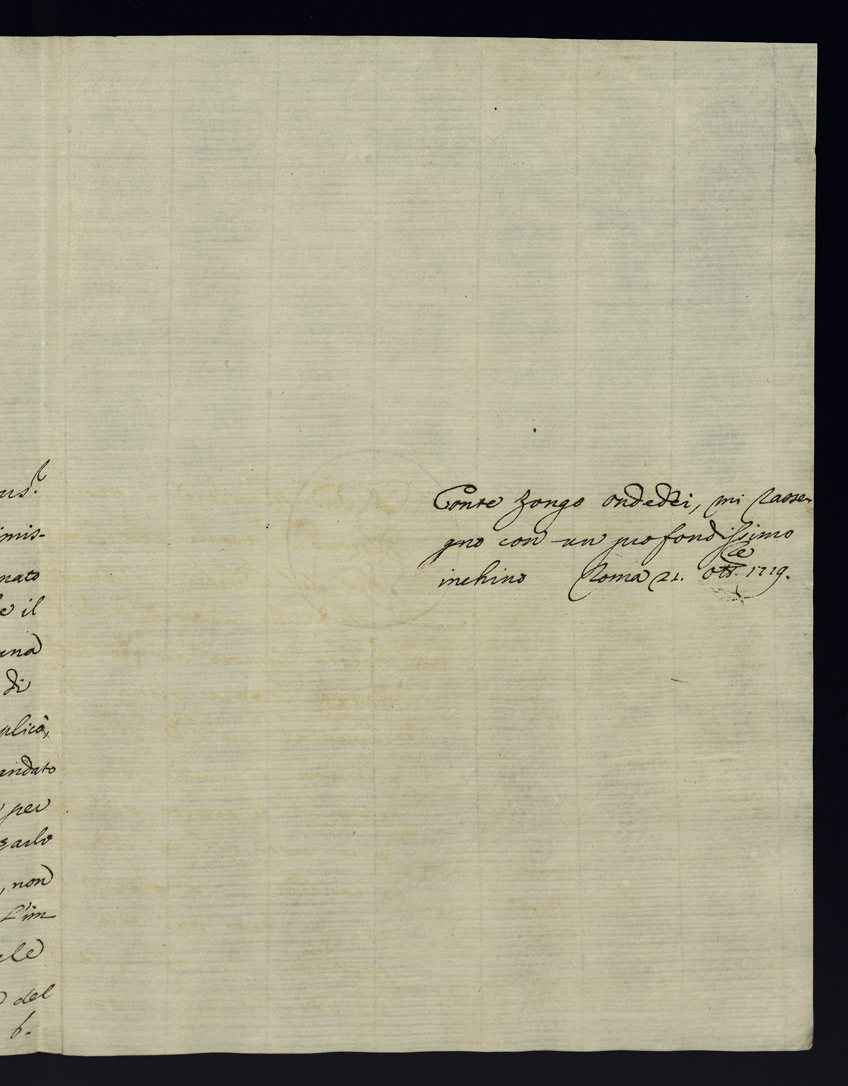 us.
imis-
nato
e il
una
di
plicò,
andato
per
sarlo
, non
L'im-
le
del
6.
Conte Zongo Ondedei, mi rasse-
gno con un profondissimo
inchino Roma 21. Ott.re 1779.